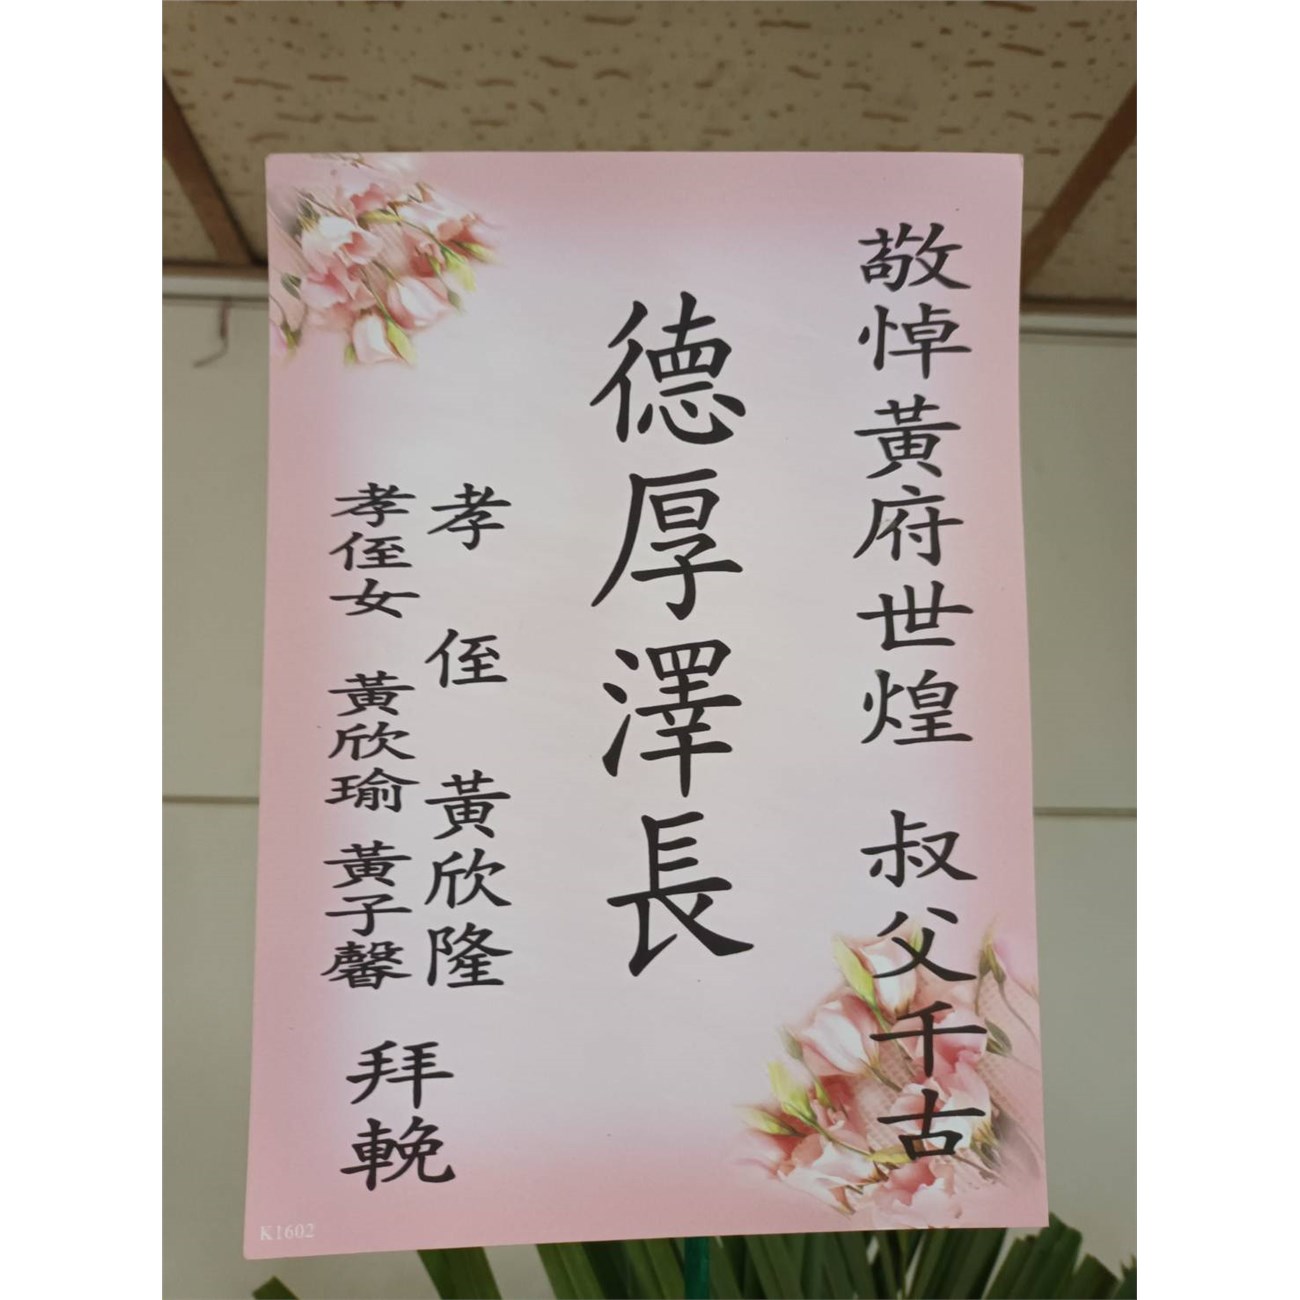 敬悼黃府世煌 叔父千古
德厚澤長
孝 侄 黃欣隆
孝侄女 黃欣瑜 黃子馨
拜輓
K1602